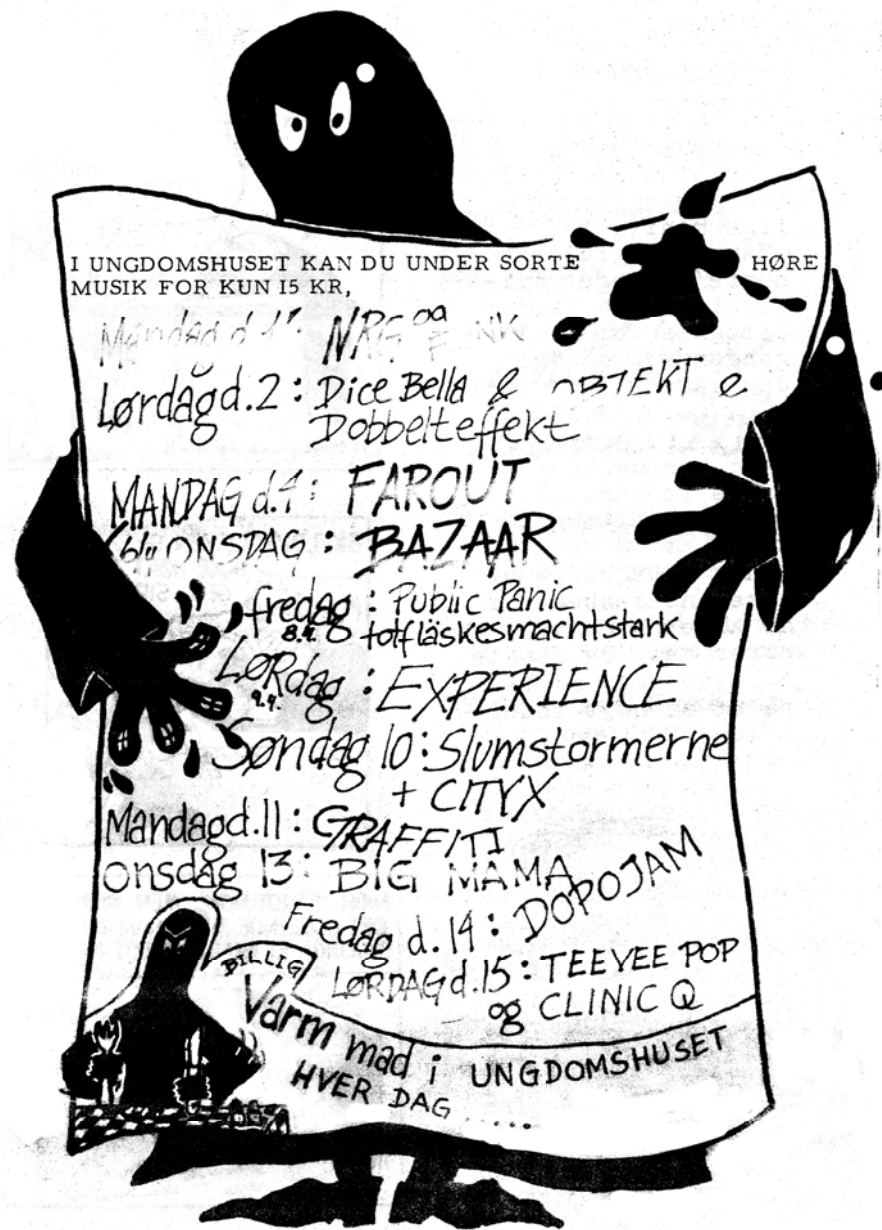 I UNGDOMSHUSET KAN DU UNDER SORTE HØRE
MUSIK FOR KUN 15 KR,
Mandag d. 1: NRG og
Lørdag d.2: Dice Bella & OBJEKT &
Dobbelteffekt
MANDAG d.4: FAROUT
ONSDAG: BAZAAR
fredag: Public Panic
8.4. totfläskesmachtstark
LØRdag: EXPERIENCE
9.4.
Søndag 10: Slumstormerne
+ CITYX
Mandag d.11: GRAFFITI
onsdag 13: BIG MAMA
Fredag d. 14: DOPOJAM
LØRDAG d.15: TEEVEE POP
og CLINIC Q
BILLIG
Varm mad i UNGDOMSHUSET
HVER DAG .....